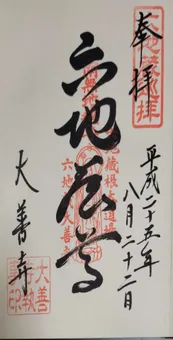 奉拝
平成二十五年
八月二十二日
六地蔵尊
大善寺
六地蔵巡拝
大善寺執印